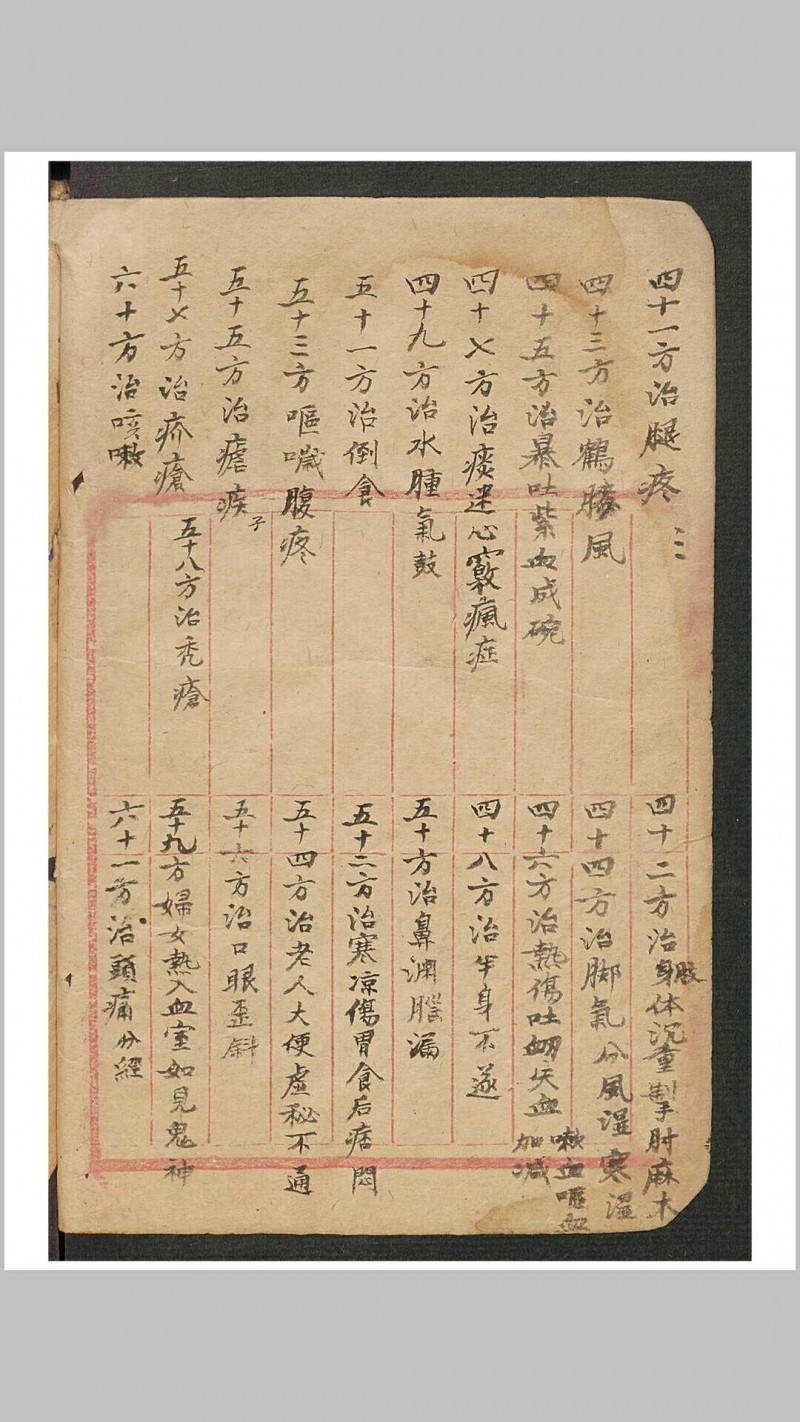 四十一方治腿疼 三
四十二方治身体沉重掣肘麻木
四十三方治鶴膝風
四十四方治脚氣分風湿寒湿
四十五方治暴吐紫血成碗
四十六方治熱傷吐衂失血 嗽血嘔血加减
四十七方治痰迷心竅瘋症
四十八方治半身不遂
四十九方治水腫氣鼓
五十方治鼻淵腦漏
五十一方治倒食
五十二方治寒凉傷胃食后痞悶
五十三方嘔喘腹疼
五十四方治老人大便虚秘不通
五十五方治瘧疾子
五十六方治口眼歪斜
五十七方治疥瘡
五十八方治秃瘡
五十九方婦女熱入血室如見鬼神
六十方治咳嗽
六十一方治頭痛分經